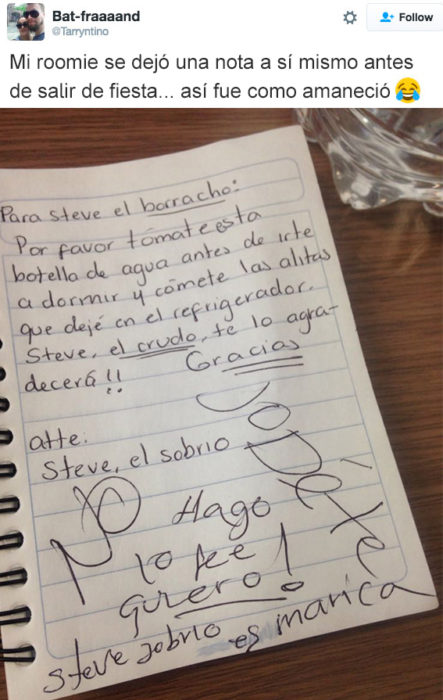 Bat-fraaaand
@Tarryntino
Follow
Mi roomie se dejó una nota a sí mismo antes
de salir de fiesta... así fue como amaneció 😂
Para Steve el borracho:
Por favor tómate esta
botella de agua antes de irte
a dormir y cómete las alitas
que dejé en el refrigerador.
Steve, el crudo, te lo agra-
decerá!!
Gracias
atte.
Steve, el sobrio
Yo Hago
lo ke
quero!
Steve sobrio es marica